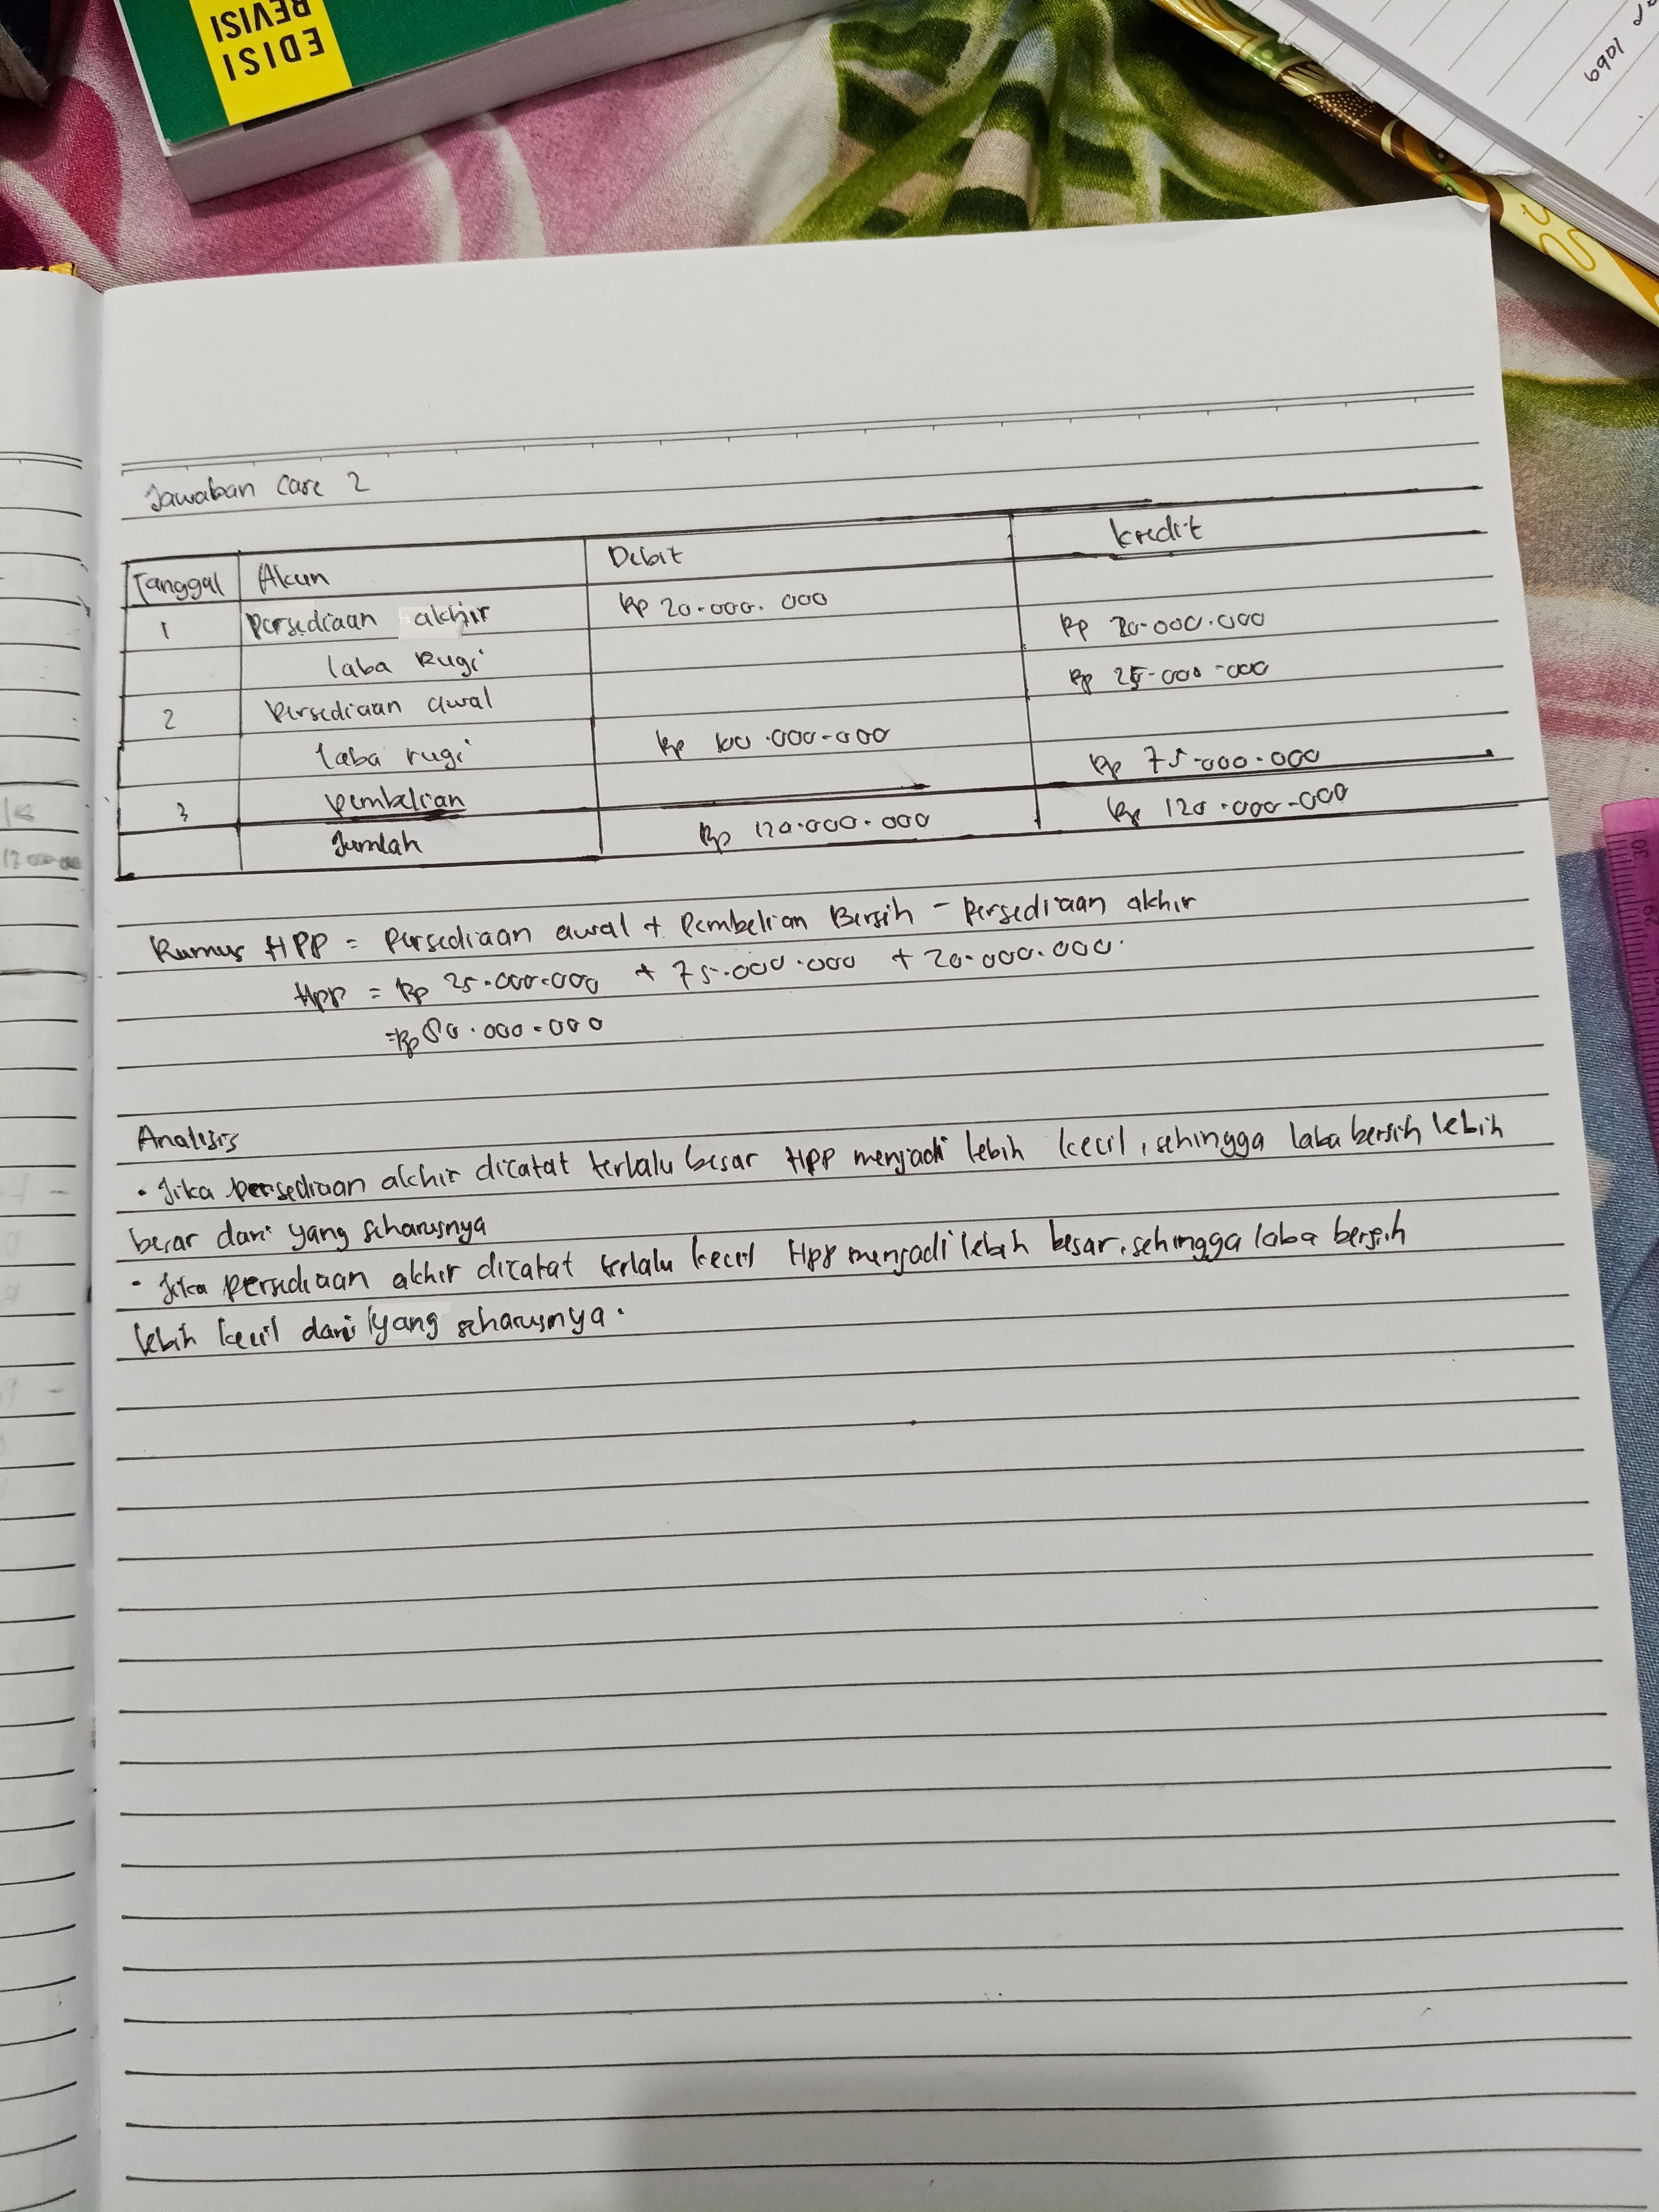 EDISI
REVISI
1069
Jawaban Case 2
Tanggal Akun Debit Kredit
1 Persediaan akhir Rp 20.000.000
laba Rugi Rp 20.000.000
2 Persediaan awal Rp 25.000.000
laba rugi Rp 100.000.000
3 Pembelian Rp 75.000.000
Jumlah Rp 120.000.000 Rp 120.000.000
Rumus HPP = Persediaan awal + Pembelian Bersih - Persediaan akhir
HPP = Rp 25.000.000 + 75.000.000 + 20.000.000.
= Rp 80.000.000
Analisis
• Jika persediaan akhir dicatat terlalu besar HPP menjadi lebih kecil, sehingga laba bersih lebih
besar dari yang seharusnya
• Jika persediaan akhir dicatat terlalu kecil HPP menjadi lebih besar, sehingga laba bersih
lebih kecil dari yang seharusnya.
30